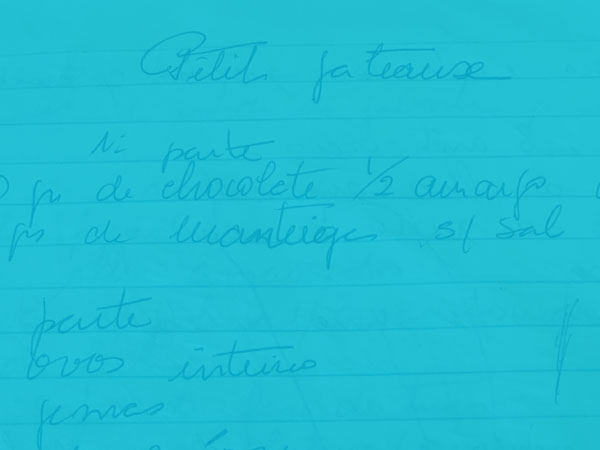 Petit gateause
1ª parte
gr de chocolate 1/2 amargo
gr de manteiga s/ sal
parte
ovos inteiros
gemas